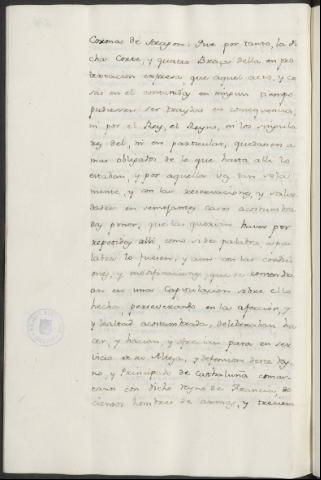 Coronas de Aragon: Que por tanto, la di
cha Corte, y quatro Brazos della en pro
testacion expresa que aquel acto, y co
sas en el contenidas en ningun tiempo
pudiessen ser traydas en consequencia,
ni por el Rey, el Reyno, ni los singula
res del, ni en particular, quedasen a
mas obligados de lo que hasta alli lo
estaban, y por aquella vez tan sola
mente, y con las reservaciones, y salve
dades en semejantes casos acostumbra
das poner, que las querian haver por
repetidas alli, como si de palabra, a pa
labra lo fuesen, y aun con las condici
ones, y modificaciones, que se contendi
an en unos Capitulacion sobre ello
hecha, perseverando en la aficcion, y
lealtad acostumbrada, deliberaban ha
cer, y hacian, y ofrecian para en ser
vicio de su Alteza, y defension deste Rey
no, y Principado de Cathaluña comar
cano con dicho Reyno de Francia, do
cientos hombres de armas, y trecien